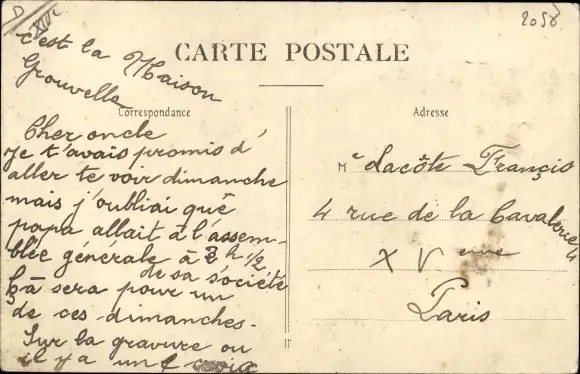 2058
c'est la Maison
Grouvelle
CARTE POSTALE
Correspondance
Adresse
Cher oncle
Je t'avais promis d'
aller te voir dimanche
mais j'oubliai que
papa allait à l'assem-
blée générale à 2h 1/2
de sa société
Çà sera pour un
de ces dimanches.
Sur la gravure ou
il y a un croix
Mr Lacôte François
4 rue de la Cavalerie 4
XVeme
Paris